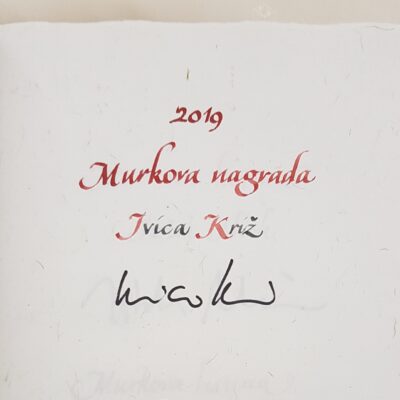 2019
Murkova nagrada
Ivica Križ